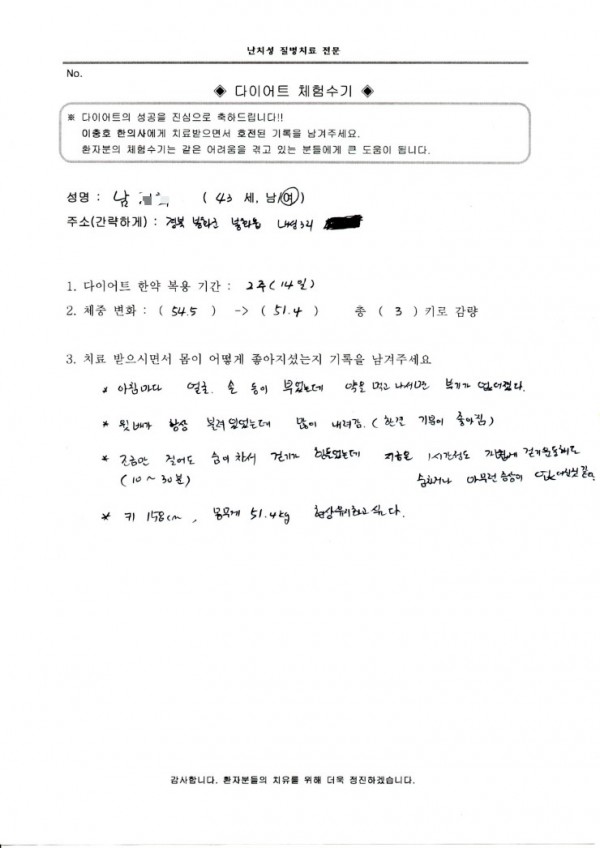 난치성 질병치료 전문
No.
◈ 다이어트 체험수기 ◈
※ 다이어트의 성공을 진심으로 축하드립니다!!
이충호 한의사에게 치료받으면서 호전된 기록을 남겨주세요.
환자분의 체험수기는 같은 어려움을 겪고 있는 분들에게 큰 도움이 됩니다.
성명 : 남 ( 43 세, 남/여 )
주소(간략하게) : 경북 봉화군 봉화읍 내성3리
1. 다이어트 한약 복용 기간 : 2주 (14일)
2. 체중 변화 : ( 54.5 ) -> ( 51.4 ) 총 ( 3 ) 키로 감량
3. 치료 받으시면서 몸이 어떻게 좋아지셨는지 기록을 남겨주세요
* 아침마다 얼굴. 손 등이 부었는데 약을 먹고 나서면 붓기가 없어졌다.
* 윗배가 항상 불러있었는데 많이 내려감. (한결 기분이 좋아짐)
* 조금만 걸어도 숨이 차서 걷기가 힘들었는데 지금은 1시간정도 가볍게 걷기운동해도
(10 ~ 30분) 숨차거나 아무런 증상이
* 키 158cm, 몸무게 51.4kg 현상유지하고 싶다.
감사합니다. 환자분들의 치유를 위해 더욱 정진하겠습니다.